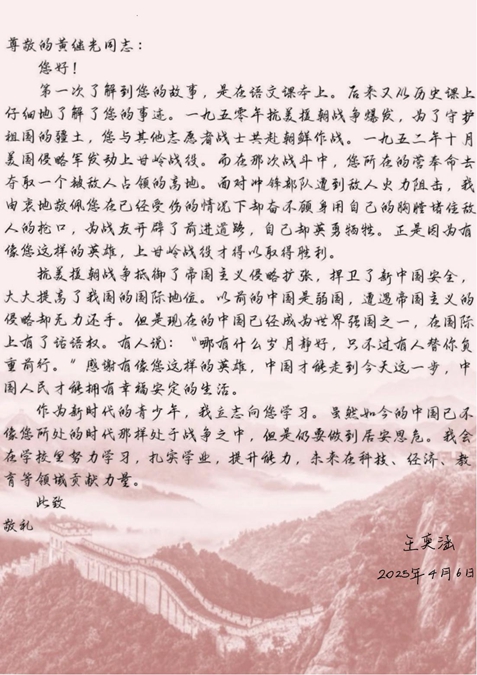 尊敬的黄继光同志：
您好！
第一次了解到您的故事，是在语文课本上。后来又从历史课上
仔细地了解了您的事迹。一九五零年抗美援朝战争爆发，为了守护
祖国的疆土，您与其他志愿者战士共赴朝鲜作战。一九五二年十月
美国侵略军发动上甘岭战役。而在那次战斗中，您所在的营奉命去
夺取一个被敌人占领的高地。面对冲锋部队遭到敌人火力阻击，我
由衷地敬佩您在已经受伤的情况下却奋不顾身用自己的胸膛堵住敌
人的枪口，为战友开辟了前进道路，自己却英勇牺牲。正是因为有
像您这样的英雄，上甘岭战役才得以取得胜利。
抗美援朝战争抵御了帝国主义侵略扩张，捍卫了新中国安全，
大大提高了我国的国际地位。以前的中国是弱国，遭遇帝国主义的
侵略却无力还手。但是现在的中国已经成为世界强国之一，在国际
上有了话语权。有人说：“哪有什么岁月静好，只不过有人替你负
重前行。”感谢有像您这样的英雄，中国才能走到今天这一步，中
国人民才能拥有幸福安定的生活。
作为新时代的青少年，我立志向您学习。虽然如今的中国已不
像您所处的时代那样处于战争之中，但是仍要做到居安思危。我会
在学校里努力学习，扎实学业，提升能力，未来在科技、经济、教
育等领域贡献力量。
此致
敬礼
王奕涵
2025年4月6日